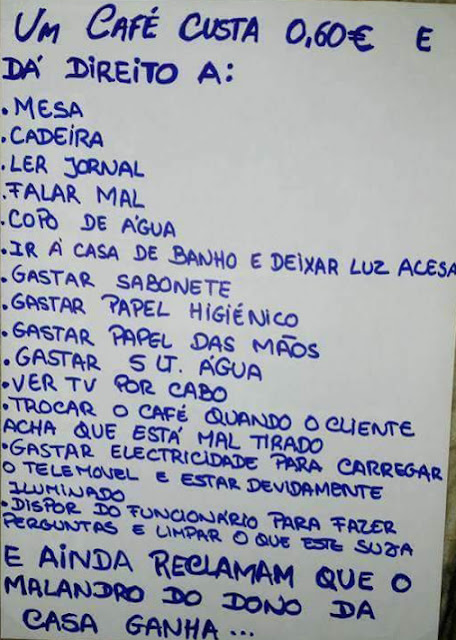 UM CAFÉ CUSTA 0,60€ E
DÁ DIREITO A:
. MESA
. CADEIRA
. LER JORNAL
. FALAR MAL
. COPO DE ÁGUA
. IR À CASA DE BANHO E DEIXAR LUZ ACESA
. GASTAR SABONETE
. GASTAR PAPEL HIGIÉNICO
. GASTAR PAPEL DAS MÃOS
. GASTAR 5 LT. ÁGUA
. VER TV POR CABO
. TROCAR O CAFÉ QUANDO O CLIENTE
ACHA QUE ESTÁ MAL TIRADO
. GASTAR ELECTRICIDADE PARA CARREGAR
O TELEMOVEL E ESTAR DEVIDAMENTE
ILUMINADO
. DISPOR DO FUNCIONÁRIO PARA FAZER
PERGUNTAS E LIMPAR O QUE ESTE SUJA
E AINDA RECLAMAM QUE O
MALANDRO DO DONO DA
CASA GANHA...